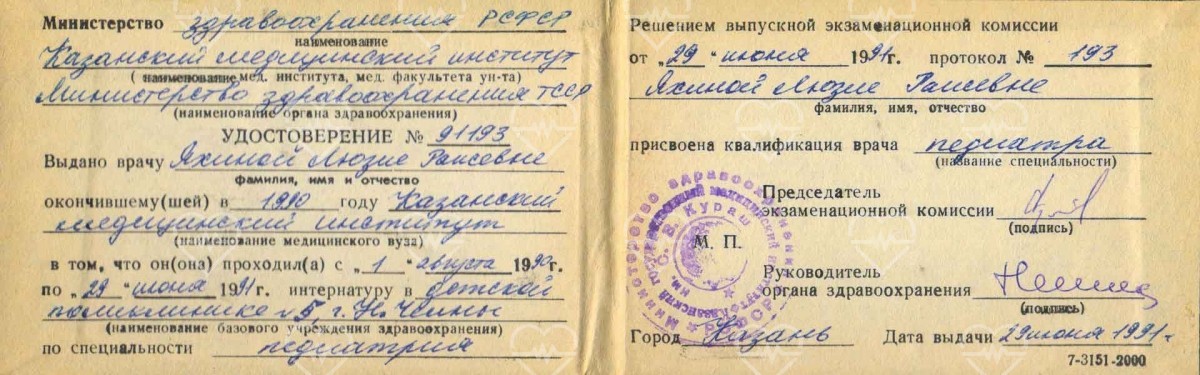 Министерство здравоохранения РСФСР
наименование
Казанский медицинский институт
(наименование мед. института, мед. факультета ун-та)
Министерство здравоохранения ТССР
(наименование органа здравоохранения)
УДОСТОВЕРЕНИЕ № 91193
Выдано врачу Яхиной Люзие Раисевне
фамилия, имя и отчество
окончившему(шей) в 1990 году Казанский
медицинский институт
(наименование медицинского вуза)
в том, что он(она) проходил(а) с „1“ августа 1990г.
по „29“ июня 1991г. интернатуру в детской
поликлинике №5 г. Н. Челны
(наименование базового учреждения здравоохранения)
по специальности педиатрия
Решением выпускной экзаменационной комиссии
от „29“ июня 1991г. протокол № 193
Яхиной Люзие Раисевне
фамилия, имя, отчество
присвоена квалификация врача педиатра
(название специальности)
Председатель
экзаменационной комиссии
(подпись)
М. П.
Руководитель
органа здравоохранения
(подпись)
Город Казань Дата выдачи 29 июня 1991г
7-3151-2000
Министерство здравоохранения
С. В. Кураш